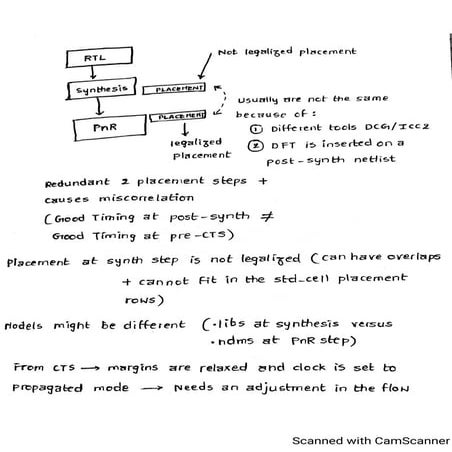 RTL
Not legalized placement
Synthesis
PLACEMENT
Usually are not the same
because of :
PnR
PLACEMENT
① Different tools DCG/ICC2
② DFT is inserted on a
post-synth netlist
legalized
placement
Redundant 2 placement steps +
causes miscorrelation
(Good Timing at post-synth ≠
Good Timing at pre-CTS)
Placement at synth step is not legalized (can have overlaps
+ cannot fit in the std-cell placement
rows)
Models might be different (.libs at synthesis versus
.ndms at PnR step)
From CTS → margins are relaxed and clock is set to
propagated mode → Needs an adjustment in the flow
Scanned with CamScanner